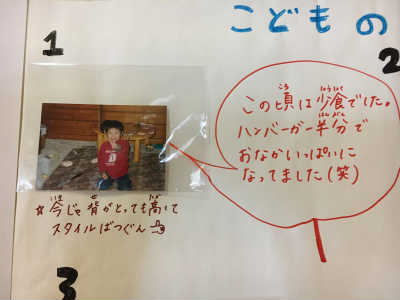 こどもの
1
2
この頃は少食でした。
ハンバーガー半分で
おなかいっぱいに
なってました(笑)
☆今じゃ背がとっても高いて
スタイルばつぐん
3